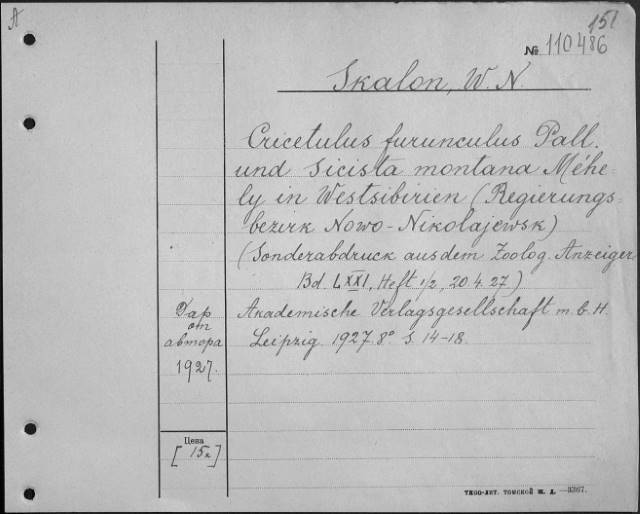 A
151
№ 110486
Skalon, W. N.
Cricetulus furunculus Pall.
und Sicista montana Méhe-
ly in Westsibirien (Regierungs-
bezirk Nowo-Nikolajewsk)
(Sonderabdruck aus dem Zoolog. Anzeiger
Bd. LXXI, Heft 1/2, 20.4.27.)
Akademische Verlagsgesellschaft m.b.H.
Leipzig. 1927. 8° S. 14-18.
Дар
от
автора
1927.
Цена
[15к]
ТИПО-ЛИТ. ТОМСКОЙ Ж. Д. —3367.